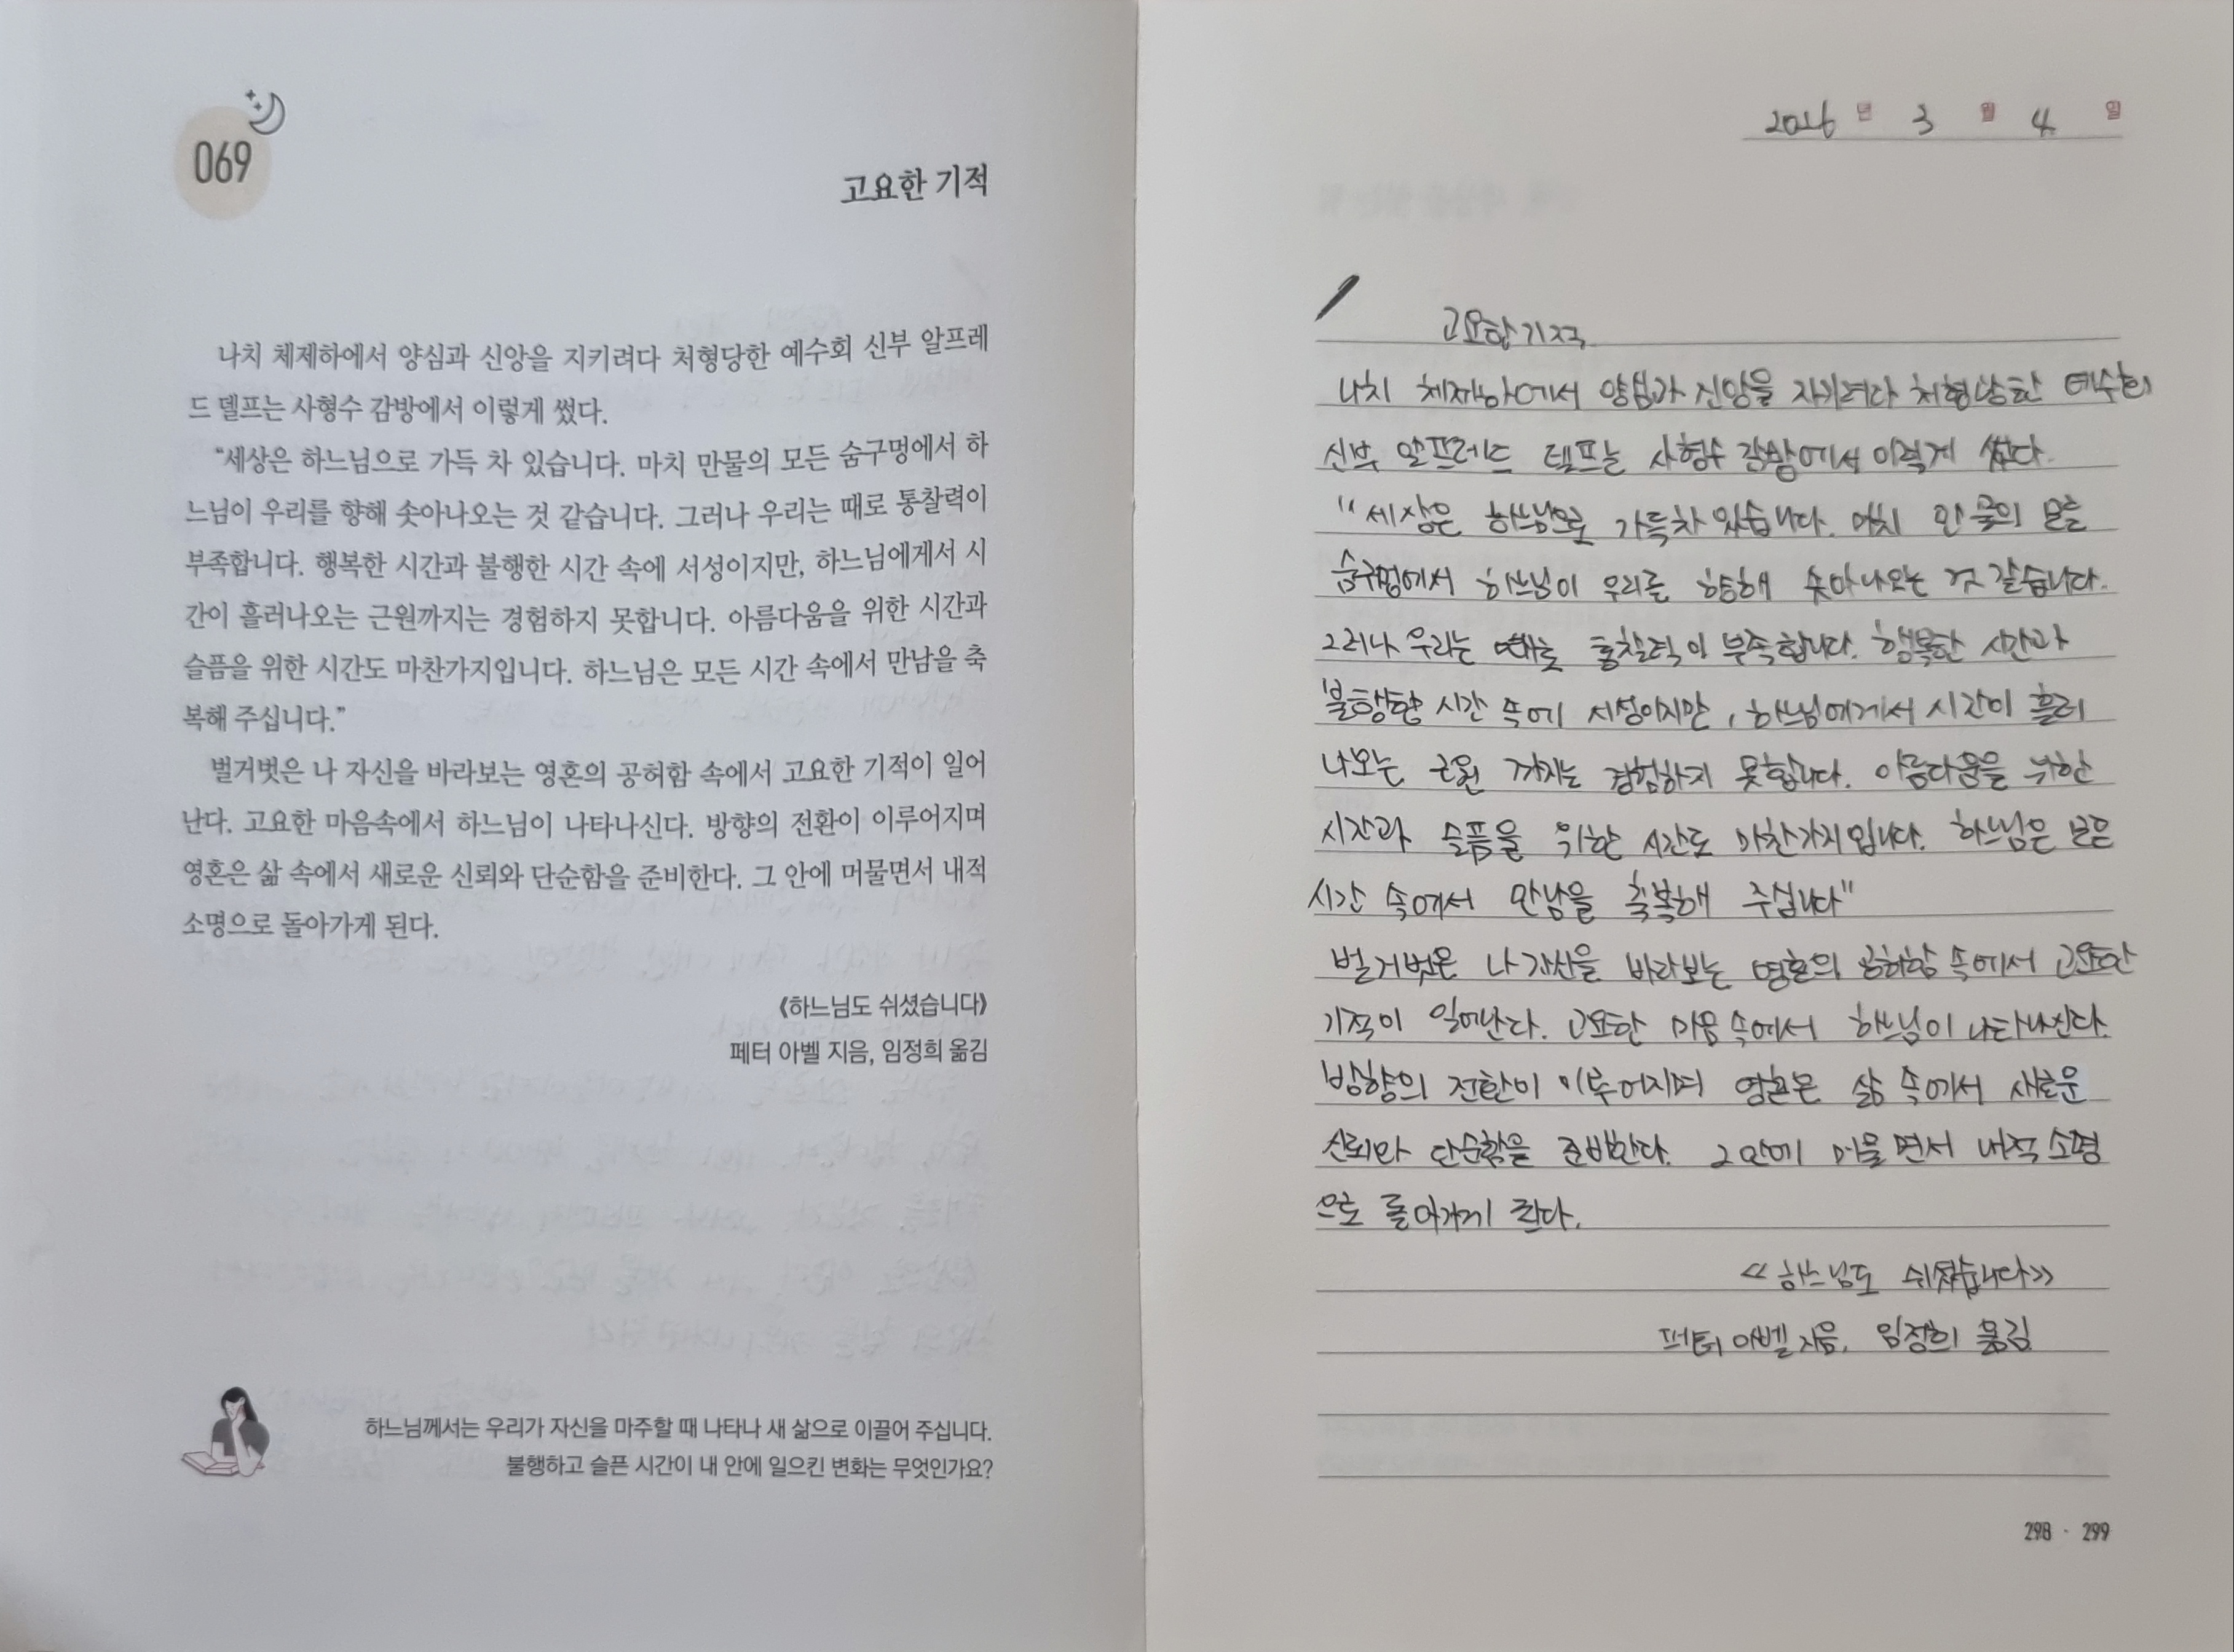 069
고요한 기적
나치 체제하에서 양심과 신앙을 지키려다 처형당한 예수회 신부 알프레
드 델프는 사형수 감방에서 이렇게 썼다.
“세상은 하느님으로 가득 차 있습니다. 마치 만물의 모든 숨구멍에서 하
느님이 우리를 향해 솟아나오는 것 같습니다. 그러나 우리는 때로 통찰력이
부족합니다. 행복한 시간과 불행한 시간 속에 서성이지만, 하느님에게서 시
간이 흘러나오는 근원까지는 경험하지 못합니다. 아름다움을 위한 시간과
슬픔을 위한 시간도 마찬가지입니다. 하느님은 모든 시간 속에서 만남을 축
복해 주십니다.”
벌거벗은 나 자신을 바라보는 영혼의 공허함 속에서 고요한 기적이 일어
난다. 고요한 마음속에서 하느님이 나타나신다. 방향의 전환이 이루어지며
영혼은 삶 속에서 새로운 신뢰와 단순함을 준비한다. 그 안에 머물면서 내적
소명으로 돌아가게 된다.
《하느님도 쉬셨습니다》
페터 아벨 지음, 임정희 옮김
하느님께서는 우리가 자신을 마주할 때 나타나 새 삶으로 이끌어 주십니다.
불행하고 슬픈 시간이 내 안에 일으킨 변화는 무엇인가요?
2026 년 3 월 4 일
고요한 기적
나치 체제하에서 양심과 신앙을 지키려다 처형당한 예수회
신부 알프레드 델프는 사형수 감방에서 이렇게 썼다.
"세상은 하느님으로 가득차 있습니다. 마치 만물의 모든
숨구멍에서 하느님이 우리를 향해 솟아나오는 것 같습니다.
그러나 우리는 때로 통찰력이 부족합니다. 행복한 시간과
불행한 시간 속에 서성이지만, 하느님에게서 시간이 흘러
나오는 근원 까지는 경험하지 못합니다. 아름다움을 위한
시간과 슬픔을 위한 시간도 마찬가지입니다. 하느님은 모든
시간 속에서 만남을 축복해 주십니다"
벌거벗은 나 자신을 바라보는 영혼의 공허함 속에서 고요한
기적이 일어난다. 고요한 마음 속에서 하느님이 나타나신다.
방향의 전환이 이루어지며 영혼은 삶 속에서 새로운
신뢰와 단순함을 준비한다. 그 안에 머물면서 내적 소명
으로 돌아가게 된다.
《하느님도 쉬셨습니다》
페터 아벨 지음, 임정희 옮김
298 · 299